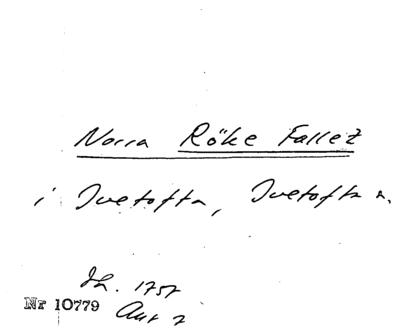 Norra Röke Fallet
i Ivetofta, Ivetofta s.
Nr 10779